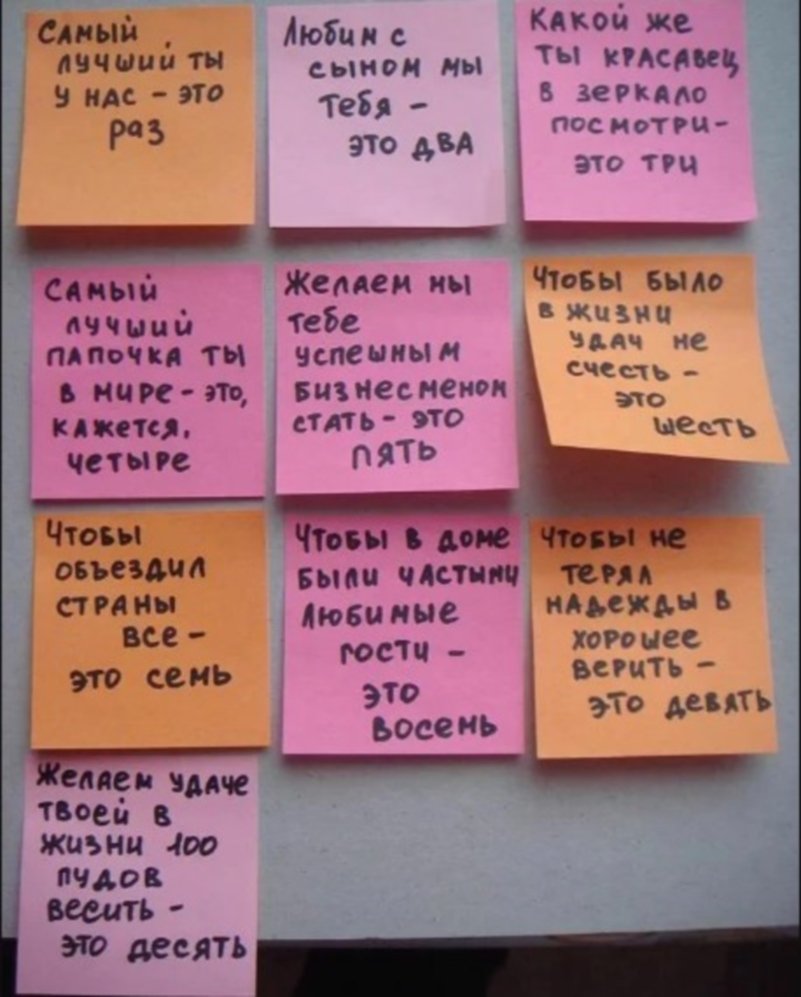 Самый
лучший ты
у нас - это
раз
Любим с
сыном мы
тебя -
это два
Какой же
ты красавец
в зеркало
посмотри-
это три
Самый
лучший
папочка ты
в мире - это,
кажется,
четыре
Желаем мы
тебе
успешным
бизнесменом
стать - это
пять
Чтобы было
в жизни
удач не
счесть -
это
шесть
Чтобы
объездил
страны
все -
это семь
Чтобы в доме
были частыми
любимые
гости -
это
восемь
Чтобы не
терял
надежды в
хорошее
верить -
это девять
Желаем удаче
твоей в
жизни 100
пудов
весить -
это десять